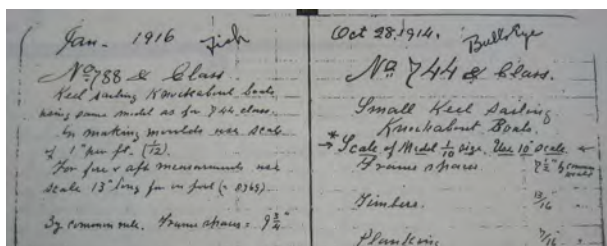 Jan. 1916 Fish
No 788 & Class
Keel sailing Knockabout boats
using same model as for 744 class.
In making moulds use scale
of 1" per ft. (1/12).
For fore & aft measurements use
scale 13" long for
By common rule. Frame spaces = 9 3/4"
Oct 28, 1914. Bulls Eye
No 744 & Class.
Small Keel Sailing
Knockabout Boats.
* Scale of Model 1/10 size. Use 10 scale.
Frame spaces 7 1/2" by common
Timbers 13/16
Planking 7/16